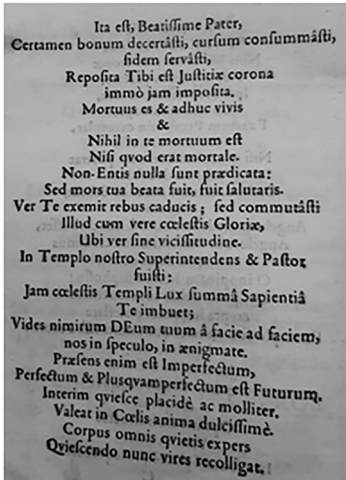 Ita est, Beatissime Pater,
Certamen bonum decertâsti, cursum consummâsti,
fidem servâsti,
Reposita Tibi est Justitiæ corona
immò jam imposita.
Mortuus es & adhuc vivis
&
Nihil in te mortuum est
Nisi qvod erat mortale.
Non-Entis nulla sunt prædicata:
Sed mors tua beata fuit, fuit salutaris.
Ver Te exemit rebus caducis; sed commutâsti
Illud cum vere cœlestis Gloriæ,
Ubi ver sine vicissitudine.
In Templo nostro Superintendens & Pastor
fuisti:
Jam cœlestis Templi Lux summâ Sapientiâ
Te imbuet;
Vides nimirum DEum tuum â facie ad faciem,
nos in speculo, in ænigmate.
Præsens enim est Imperfectum,
Perfectum & Plusqvamperfectum est Futurum.
Interim qviesce placidè ac molliter.
Valeat in Cœlis anima dulcissimè.
Corpus omnis qvietis expers
Qviescendo nunc vires recolligat.